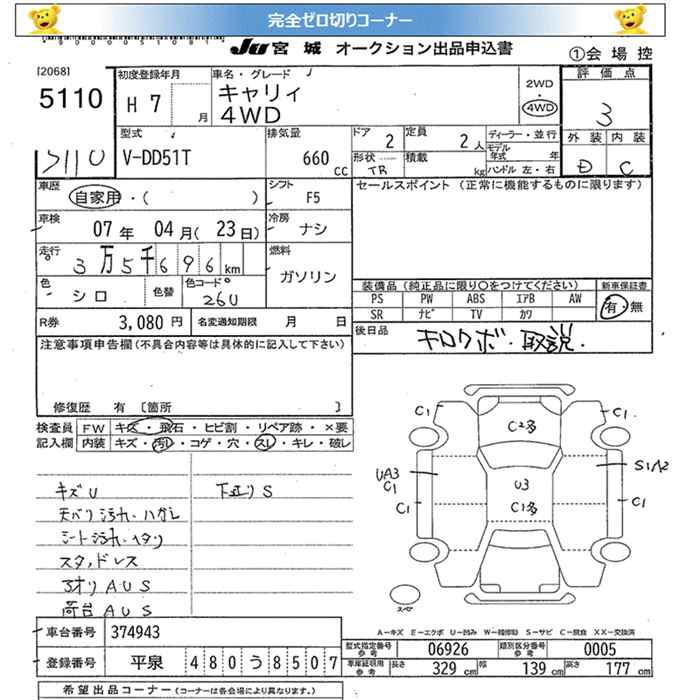 完全ゼロ切りコーナー
JU 宮城 オークション出品申込書
①会場控
[2068]
5110
初度登録年月
H 7
月
車名・グレード
キャリィ
4WD
2WD
・
4WD
評価点
3
5110
型式
V-DD51T
排気量
660
cc
ドア
2
定員
2人
形状
TR
積載
kg
ディーラー・並行
モデル年式
年
ハンドル 左・右
外装
内装
D
C
車歴
自家用・( )
シフト
F5
セールスポイント (正常に機能するものに限ります)
車検
07年 04月( 23日)
冷房
ナシ
走行
3万5千696km
燃料
ガソリン
色
シロ
色替
色コードNo
26U
装備品 (純正品に限り○をつけてください)
新車保証書
PS PW ABS エアB AW
SR ナビ TV カワ
有・無
R券
3,080 円
名変通知期限 月 日
後日品
キロクボ・取説
注意事項申告欄(不具合内容等は具体的に記入して下さい)
修復歴 有 [箇所 ]
検査員
記入欄
FW キズ・飛石・ヒビ割・リペア跡・×要
内装 キズ・汚れ・コゲ・穴・スレ・キレ・破レ
キズU
下廻りS
天バリ汚れ・ハガレ
シート汚れ・ヘタリ
スタッドレス
3オリ AUS
荷台 AUS
C1
C1
C2多
UA3
C1
C1
U3
C1多
S1A2
C1
スペア
A-キズ E-エクボ U-凹み W-補修跡 S-サビ C-腐食 XX-交換済
車台番号
374943
型式指定番号参考
06926
類別区分番号参考
0005
登録番号
平泉 480う8507
車庫証明用参考
長さ 329 cm
幅 139 cm
高さ 177 cm
希望出品コーナー (コーナーは各会場により異なります。)